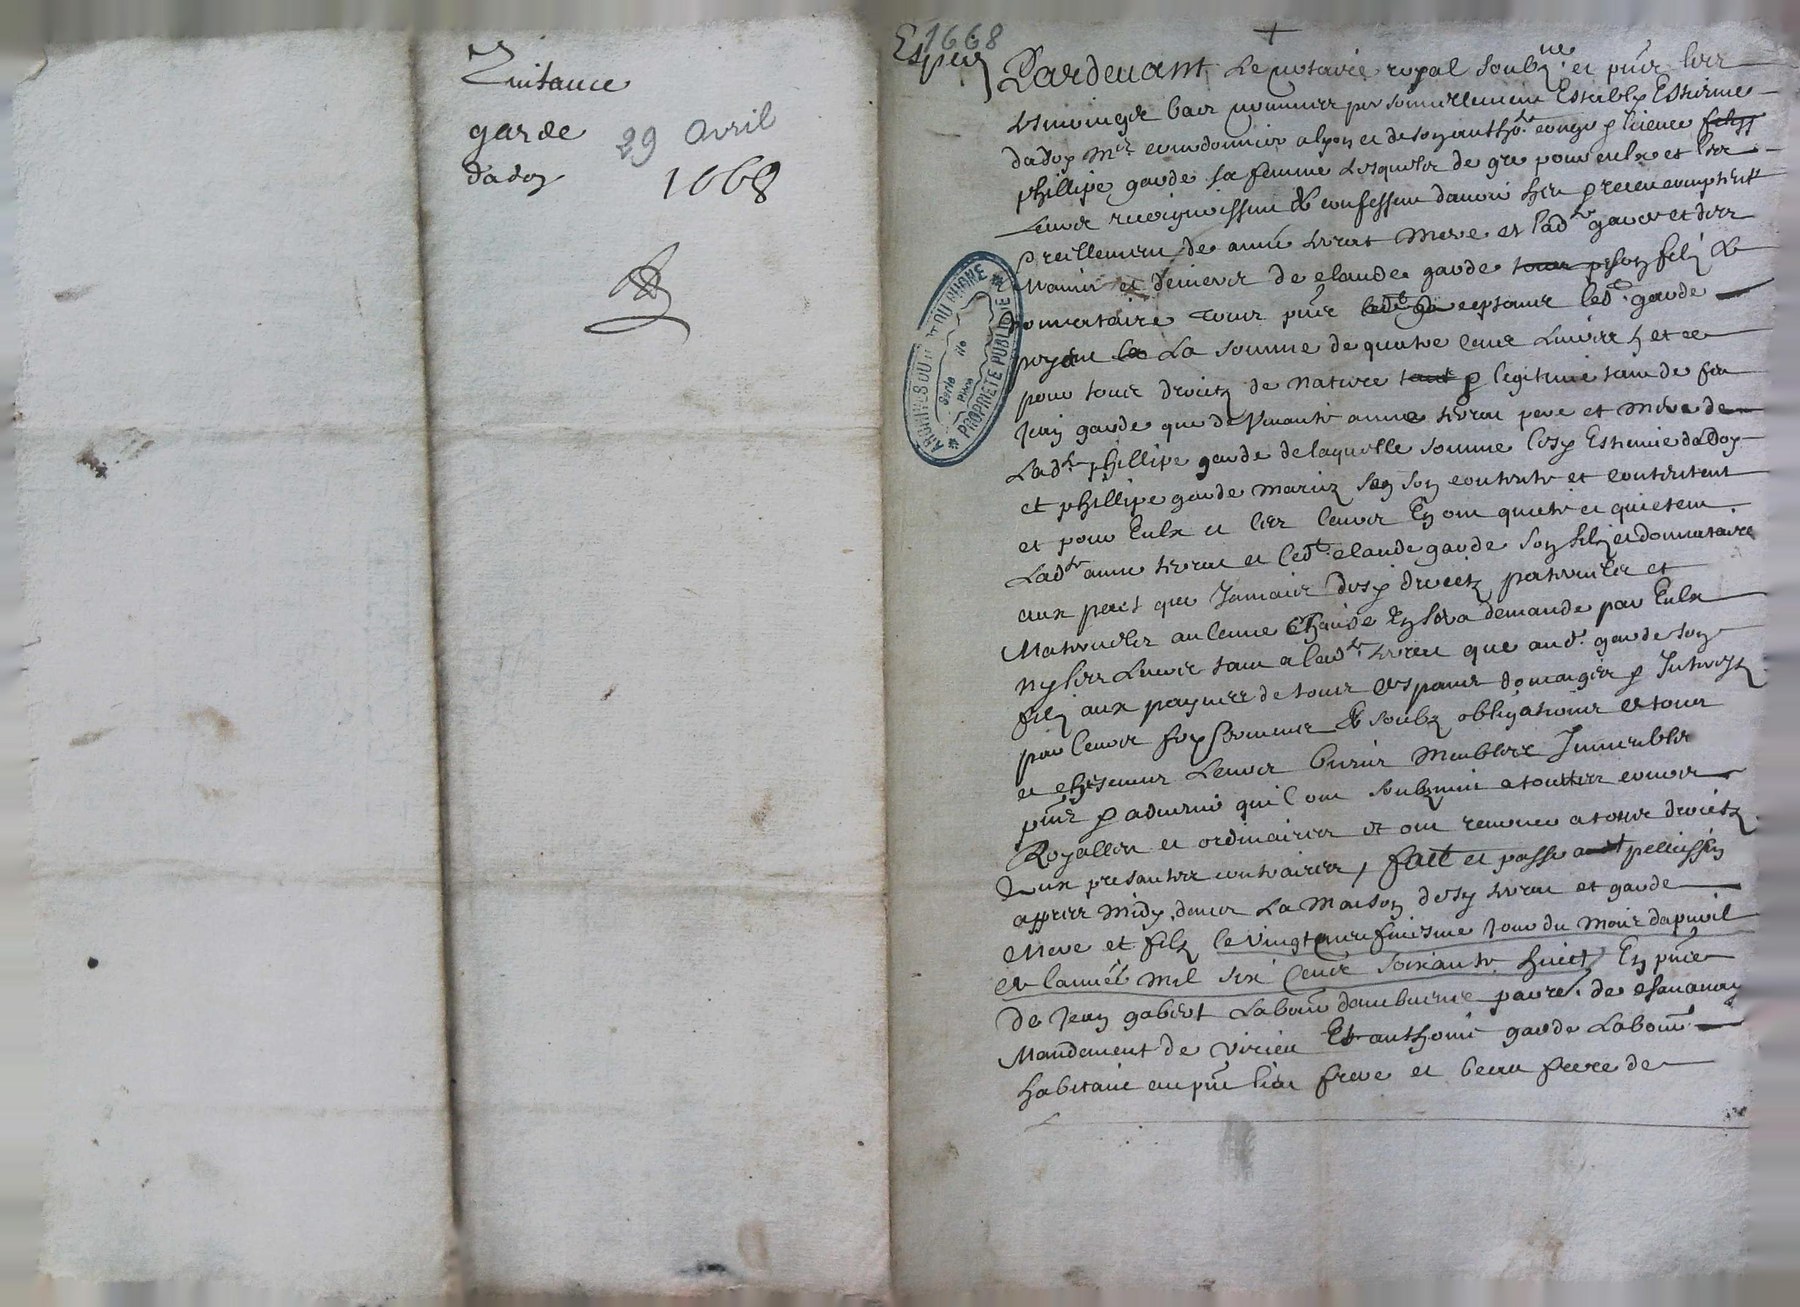 Quitance
garde
dadoy
29 Avril
1668
1668
Expedié
Pardevant Le notaire royal soubzne et pnt les
tesmoingz bas nommes personnellement Establyz Estienne
dadoy Mre cordonnier a lyon et de son authte conge & licence
phillipe garde sa femme Lesquelz de gre pour eulx et les
Leurs recognoissent & confessent davoir heu & receu comptent
reellement de anne terrat mere et ladte garde et des
Mains et deniers de claude garde son filz &
donnataire pnt ceptant led. garde
payant La somme de quatre cent Livres et ce
pour tous droictz de nature & legitime tant de feu
Jean garde que de Vivante anne terrat pere et mere de
Ladte phillipe garde de laquelle somme lesd Estienne dadoy
et phillipe garde mariez son contentz et contentent
et pour Eulx et les leurs En ont quicte et quictent
Ladte anne terrat et ledt claude garde son filz et donnataire
aux pact que Jamais desd droictz paternelz et
Maternelz aulcune choze En sera demande par Eulx
ny les Leurs tant a ladte terrat que aud. garde son
filz aux peynes de tous despans domaiges & Interestz
par leurs foy Serment & soubz obligations de tous
et chescungs Leurs biens Meubles Immeubles
pntz & advenir quil ont soubzmis a toutes cours
Royalles et ordinaires et ont renonce a tous droictz
aux presantes contraires, fait et passe a pelissin
appres midy, dans La Maison desd terrat et garde
Mere et filz le vingtneufviesme Jour du Mois dapvril
& lannee Mil six Centz soixante huict En pnce
de Jean gabert Labour parre. de chavanay
Mandement de virieu Et anthoine garde Labour
habitant au pnt lieu frere et beau frere de
ARCHIVES DU DEPT DU RHONE
PROPRIETE PUBLIQUE
Serie
No
Pièce